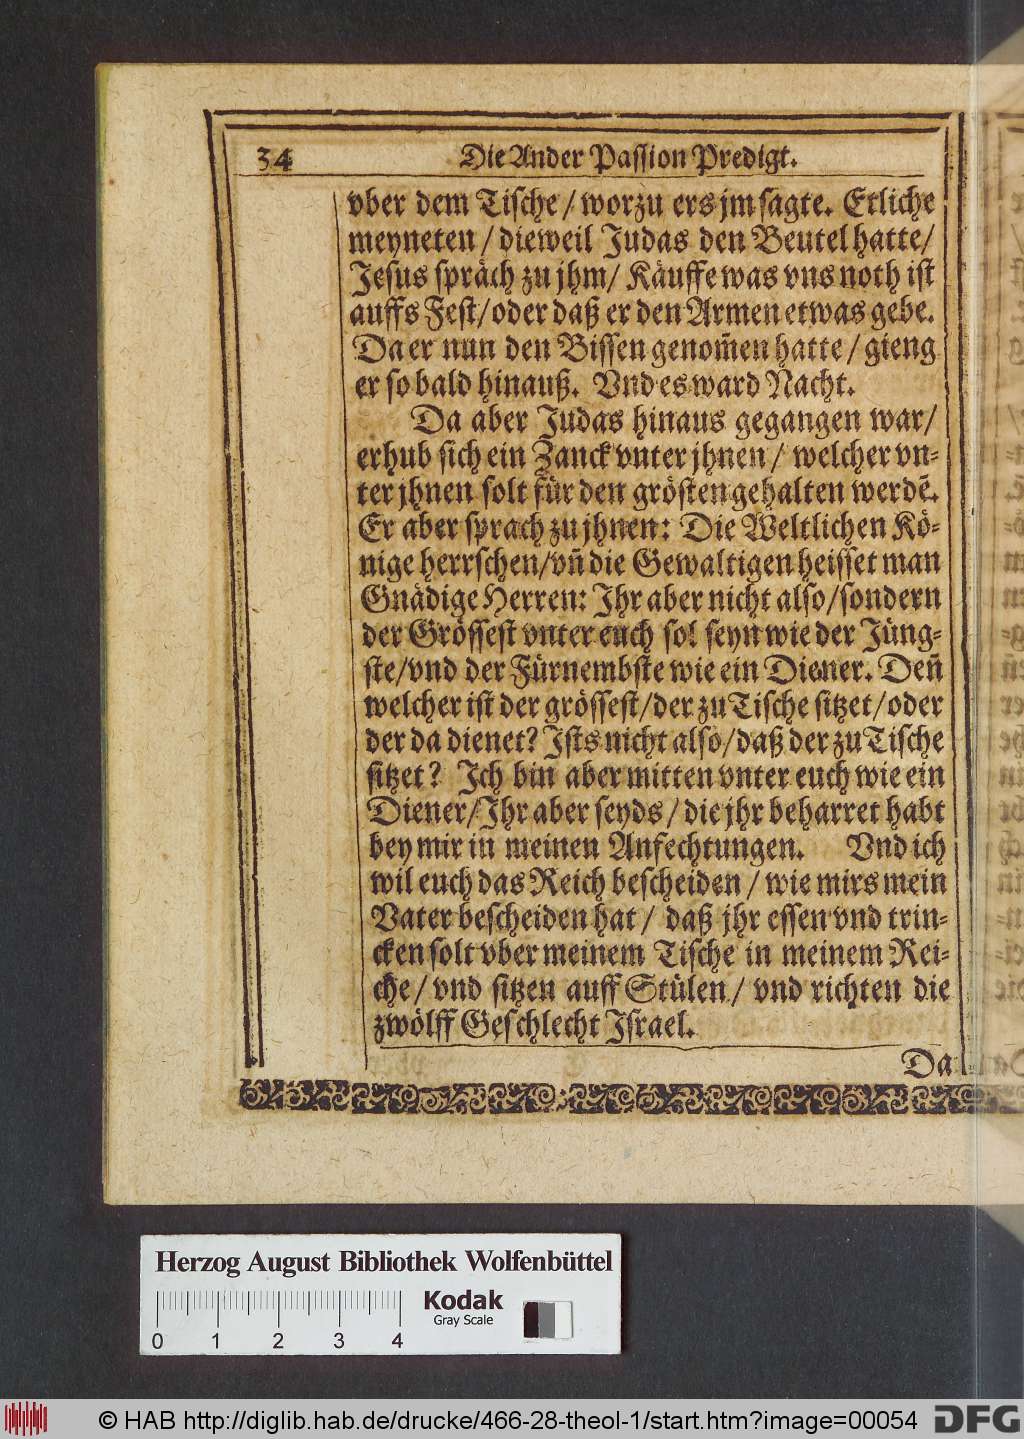 34
Die Ander Passion Predigt.
vber dem Tische / worzu ers jm sagte. Etliche
meyneten / dieweil Judas den Beutel hatte /
Jesus spräch zu jhm / Käuffe was vns noth ist
auffs Fest / oder daß er den Armen etwas gebe.
Da er nun den Bissen genom̃en hatte / gieng
er so bald hinauß. Vnd es ward Nacht.
Da aber Judas hinaus gegangen war /
erhub sich ein Zanck vnter jhnen / welcher vn-
ter jhnen solt für den grösten gehalten werdẽ.
Er aber sprach zu jhnen: Die Weltlichen Kö-
nige herrschen / vñ die Gewaltigen heisset man
Gnädige Herren: Ihr aber nicht also / sondern
der Grössest vnter euch sol seyn wie der Jüng-
ste / vnd der Fürnembste wie ein Diener. Deñ
welcher ist der grössest / der zu Tische sitzet / oder
der da dienet? Ists nicht also / daß der zu Tische
sitzet? Ich bin aber mitten vnter euch wie ein
Diener / Ihr aber seyds / die jhr beharret habt
bey mir in meinen Anfechtungen. Vnd ich
wil euch das Reich bescheiden / wie mirs mein
Vater bescheiden hat / daß jhr essen vnd trin-
cken solt vber meinem Tische in meinem Rei-
che / vnd sitzen auff Stülen / vnd richten die
zwölff Geschlecht Israel.
Da
Herzog August Bibliothek Wolfenbüttel
0 1 2 3 4
Kodak
Gray Scale
© HAB http://diglib.hab.de/drucke/466-28-theol-1/start.htm?image=00054
DFG